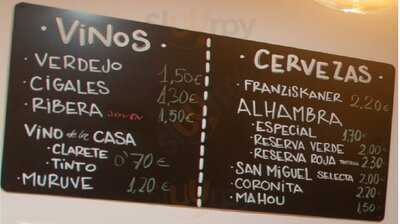 · VINOS ·
· VERDEJO 1,50€
· CIGALES 1,30€
· RIBERA JOVEN 1,50€
VINO de la CASA
· CLARETE
· TINTO 0'70€
· MURUVE 1,20€
· CERVEZAS ·
· FRANZISKANER 2,20€
ALHAMBRA
· ESPECIAL 1,70
· RESERVA VERDE 2,00
· RESERVA ROJA 2,30
· SAN MIGUEL SELECTA 2,00
· CORONITA 2,70
· MAHOU 1,50